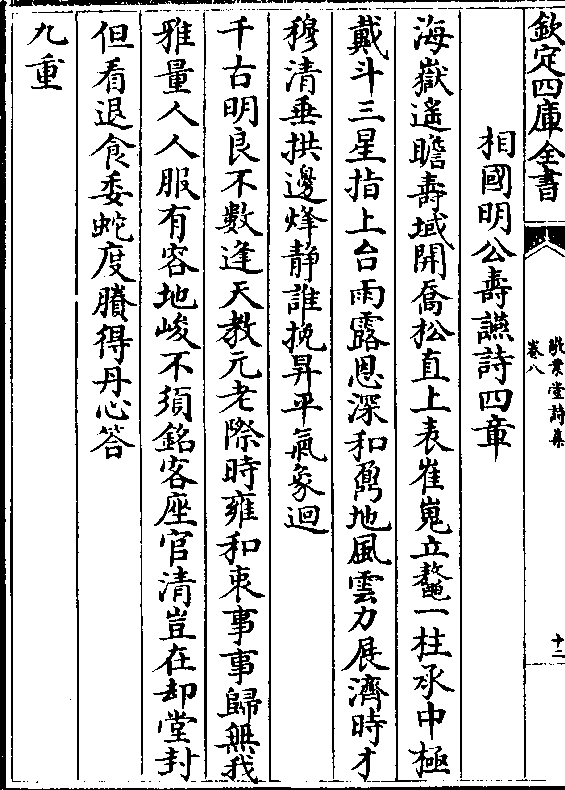 欽定四庫全書
敬業堂詩集
卷八
十二
相國明公壽讌詩四章
海嶽遙瞻壽域開喬松直上表崔嵬立鼇一柱承中極
戴斗三星指上台雨露恩深和鼐地風雲力展濟時才
穆清垂拱邊烽靜誰挽昇平氣象迴
千古明良不數逢天教元老際時雍和衷事事歸無我
雅量人人服有容地峻不須銘客座官清豈在却堂封
但看退食委蛇度賸得丹心答
九重